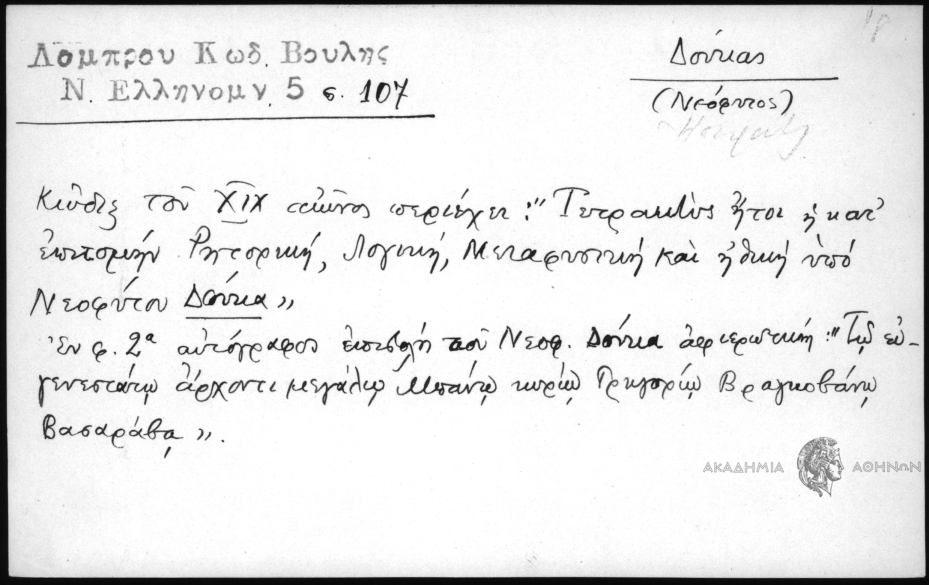 Λαμπρου Κωδ. Βουλης
Ν. Ελληνομν. 5 σ. 107
Δούκας
(Νεόφυτος)
Κώδιξ τοῦ XIX αἰῶνος περιέχει: "Τετρακτὺς ἤτοι ἡ κατ'
ἐπιτομὴν Ρητορική, Λογική, Μεταφυσικὴ καὶ ἠθικὴ ὑπό
Νεοφύτου Δούκα "
Ἐν φ. 2α αὐτόγραφος ἐπιστολὴ τοῦ Νεοφ. Δούκα ἀφιερωτική: "Τῷ εὐ-
γενεστάτῳ ἄρχοντι μεγάλῳ Μπάνῳ κυρίῳ Γρηγορίῳ Βραγκοβάνῳ
Βασαράβᾳ ".
ΑΚΑΔΗΜΙΑ ΑΘΗΝΩΝ